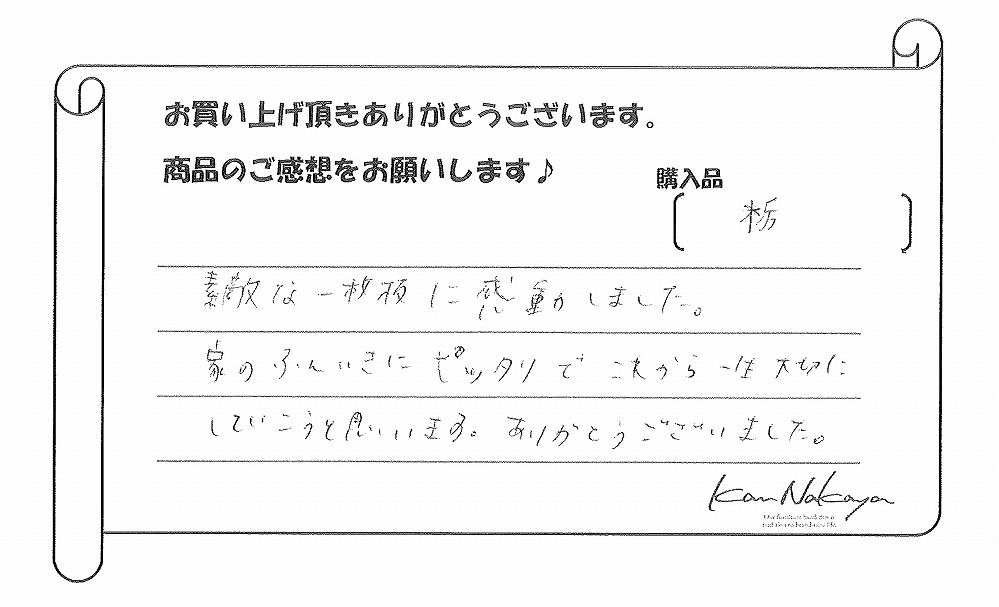 お買い上げ頂きありがとうございます。
商品のご感想をお願いします♪
購入品
栃
素敵な一枚板に感動しました。
家のふんいきにピッタリでこれから一生大切に
していこうと思いいます。ありがとうございました。
Kan Nakaya
Our furniture hand down
tradition to brand-new life.